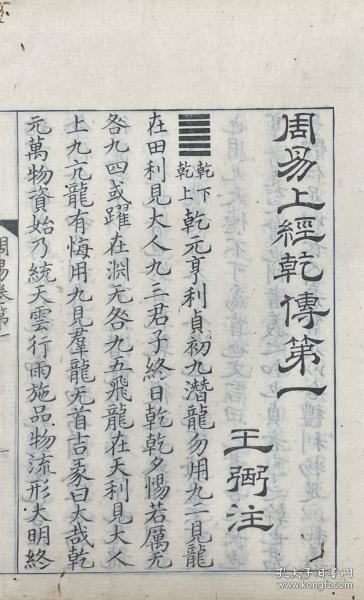 周易上經乾傳第一
王弼注
乾下
乾上
乾元亨利貞初九潛龍勿用九二見龍
在田利見大人九三君子終日乾乾夕惕若厲无
咎九四或躍在淵无咎九五飛龍在天利見大人
上九亢龍有悔用九見羣龍无首吉彖曰大哉乾
元萬物資始乃統天雲行雨施品物流形大明終
周易卷第一
孔夫子旧书网
www.kongfz.com